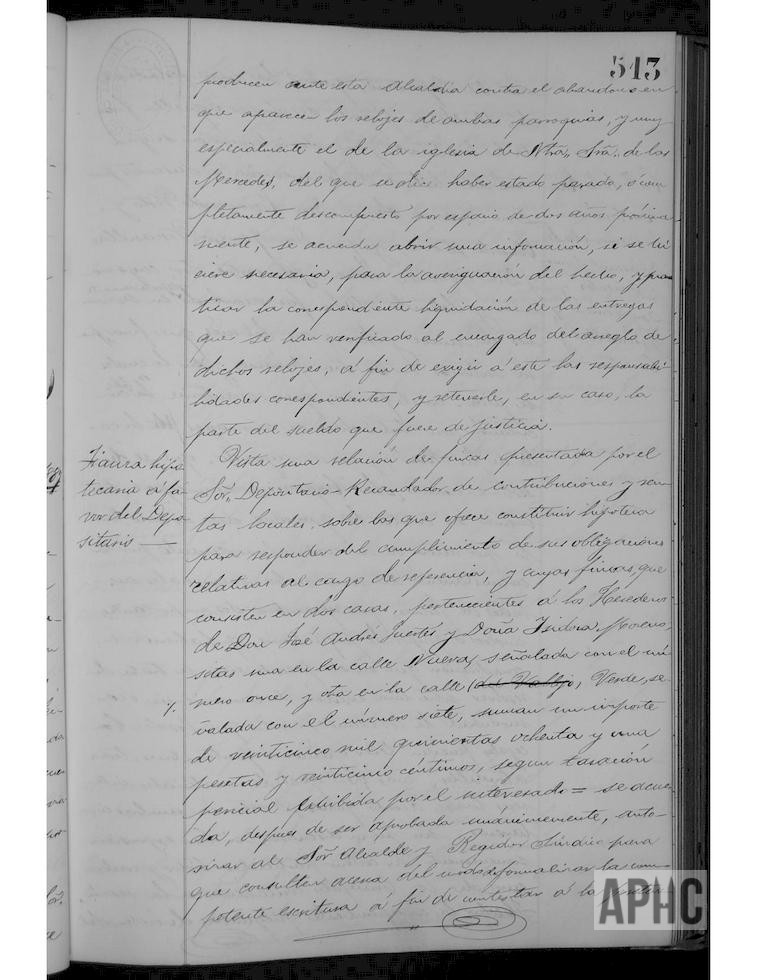 513
producen ante esta Alcaldia contra el abandono en
que aparecen los relojes de ambas parroquias, y muy
especialmente el de la iglesia de Ntra,, Sra,, de las
Mercedes, del que se dice haber estado parado, ó com
pletamente descompuesto por espacio de dos años próxima
mente, se acuerda abrir una información, si se hi
ciere necesaria, para la averiguación del hecho, y prac
ticar la correspondiente liquidación de las entregas
que se han verificado al encargado del arreglo de
dichos relojes, á fin de exigir á este las responsabi
lidades correspondientes, y retenerle, en su caso, la
parte del sueldo que fuere de justicia.
Fianza hipo
tecaria á fa-
vor del Depo-
sitario —
Vista una relación de fincas presentada por el
Sor,, Depositario-Recaudador de contribuciones y ren
tas locales, sobre las que ofrece constituir hipoteca
para responder del cumplimiento de sus obligaciones
relativas al cargo de referencia, y cuyas fincas, que
consisten en dos casas, pertenecientes á los Herederos
de Don José Andrés Fuertes y Doña Isidora Moreno,
sitas una en la calle Nueva, señalada con el nú
mero once, y otra en la calle (del Vallejo) Verde, se-
ñalada con el número siete, suman un importe
de veinticinco mil quinientas ochenta y una
pesetas y veinticinco céntimos, segun tasación
pericial exhibida por el interesado = se acuer
da, despues de ser aprobada unánimemente, auto-
rizar al Sor Alcalde y Regidor Síndico para
que consulten acerca del modo de formalizar la com-
petente escritura á fin de contestar á la
APHC